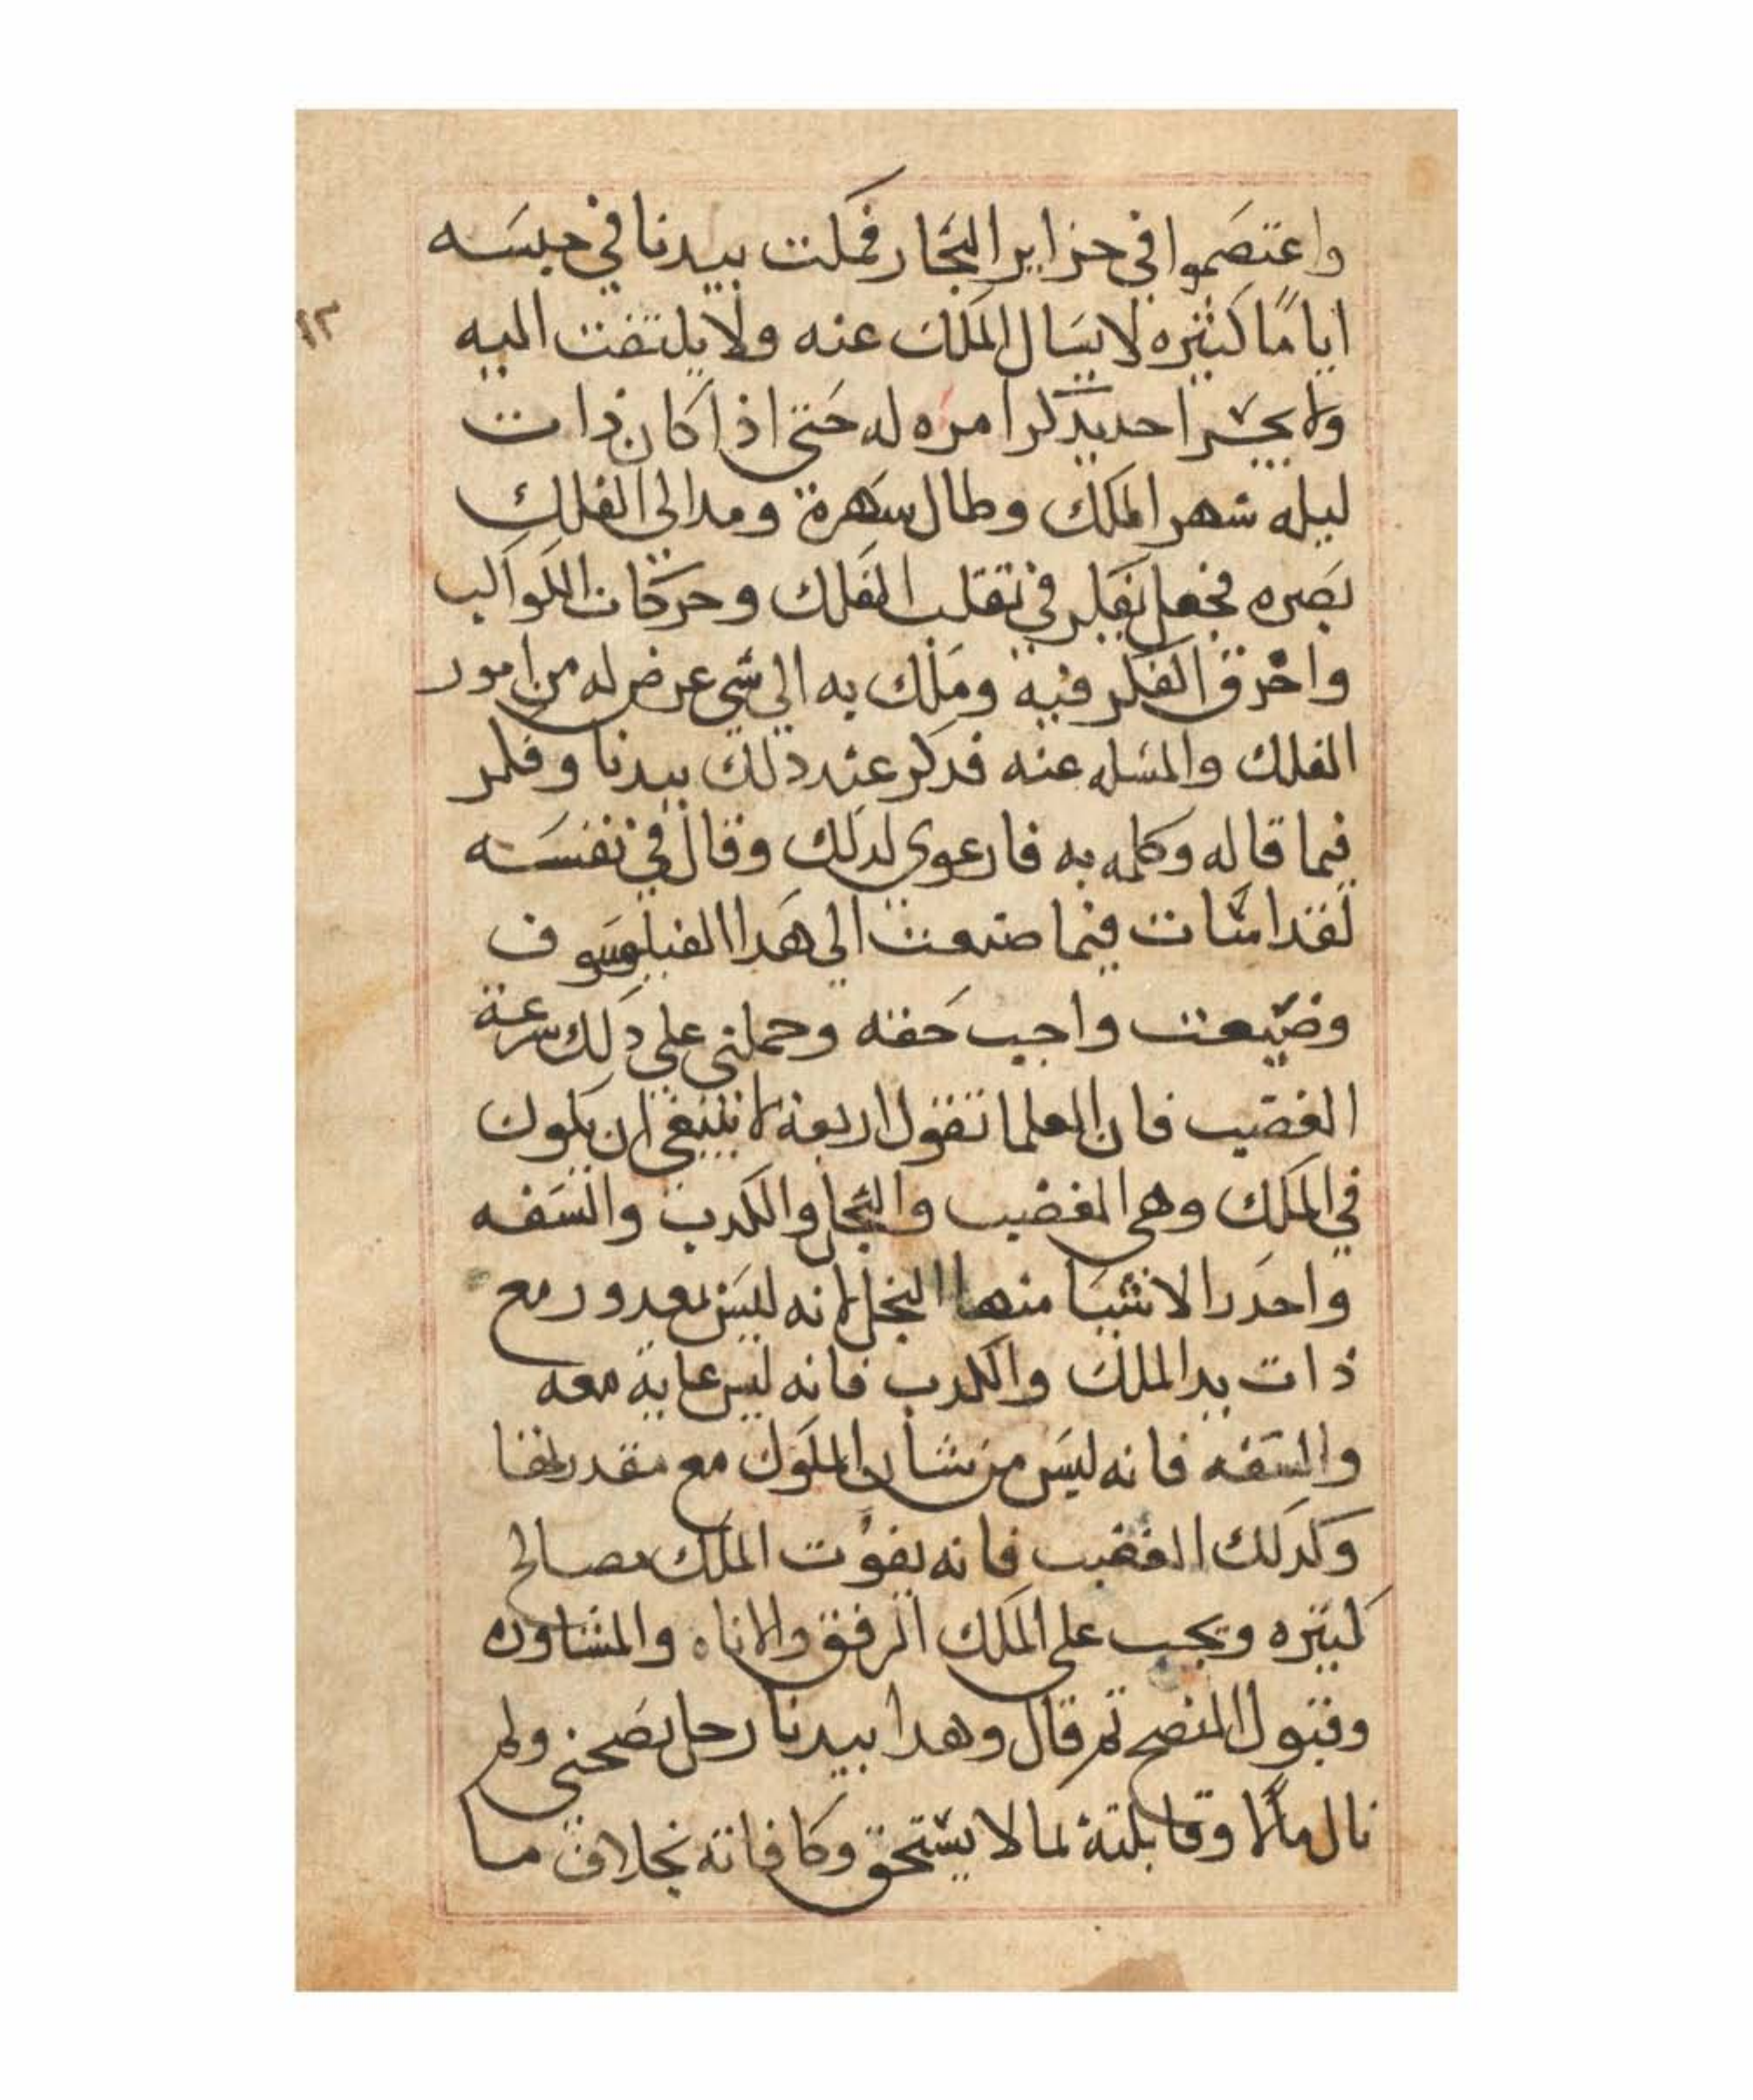 واعتصموا في جزاير البحار فمكت بيدنا في حبسه
اياما كثيره لا يسال الملك عنه ولا يلتفت اليه
ولا يجسر احد يدكر امره له حتى اذا كان ذات
ليله سهر الملك وطال سهرة ومد الى الفلك
بصره فجعل يفكر في تقلب الفلك وحركات الكواكب
واخرق الفكر فيه وملك به الي شي عرض له من امور
الفلك والمسله عنه فدكر عند دلك بيدنا وفكر
فيما قاله وكلمه به فارعوي لدلك وقال في نفسه
لقد اسات فيما صنعت الى هدا الفيلوسوف
وضيعت واجب حقه وحملني على دلك سرعة
الغضب فان العلما تقول اربعة لا ينبغي ان يكون
في الملك وهي الغضب والبخل والكدب والسفه
واحدر الاشيا منها البخل لانه ليس بمعدور مع
ذات يد الملك والكدب فانه ليس عايه معه
والسفه فانه ليس من شان الملوك مع مقدرتها
وكدلك الغضب فانه يفوت الملك مصالح
كثيره ويجب على الملك الرفق والاناه والمشاوره
وقبول النصح ثم قال وهدا بيدنا رجل نصحني ولم
نال مالا وقابلتة بما لا يستحق وكافاته بخلاف ما
١٣